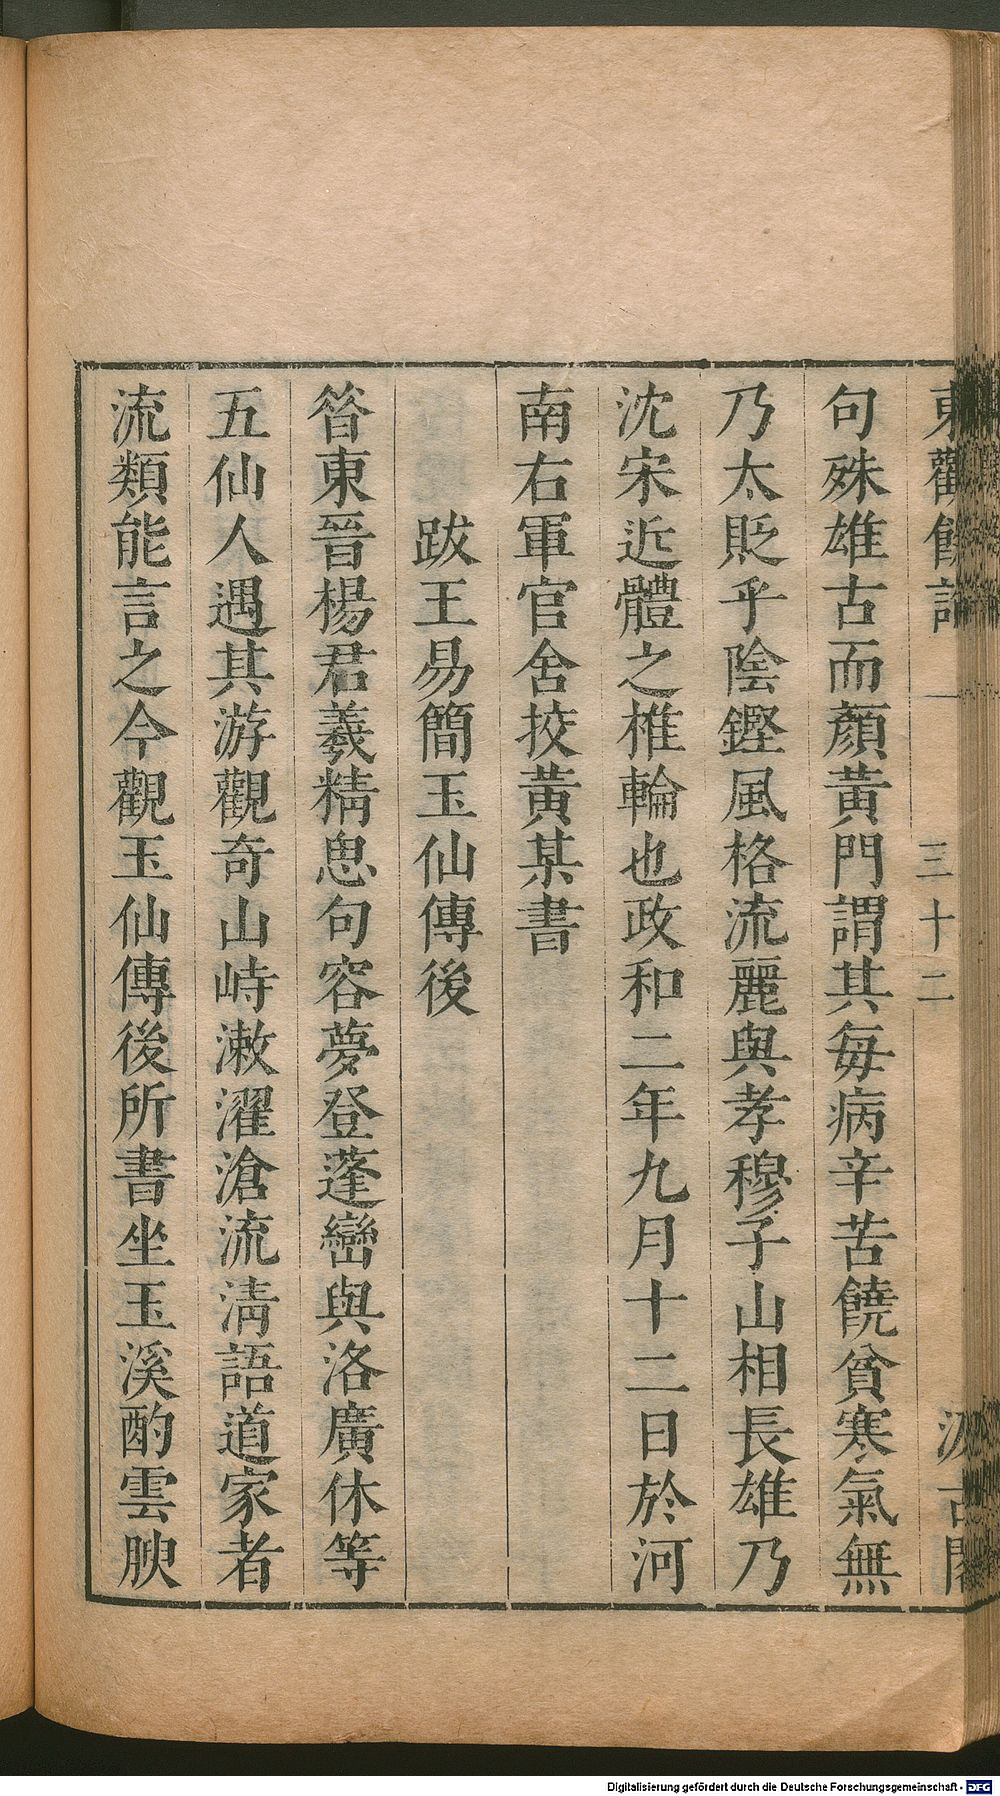 東觀餘論 一 三十二 汲古閣
句殊雄古而顏黃門謂其每病辛苦饒貧寒氣無
乃太貶乎陰鏗風格流麗與孝穆子山相長雄乃
沈宋近體之椎輪也政和二年九月十二日於河
南右軍官舍挍黃某書
跋王易簡玉仙傳後
昝東晉楊君羲精思句容夢登蓬巒與洛廣休等
五仙人遇其游觀奇山峙漱濯滄流淸語道家者
流類能言之今觀玉仙傳後所書坐玉溪酌雲腴
Digitalisierung gefördert durch die Deutsche Forschungsgemeinschaft - DFG